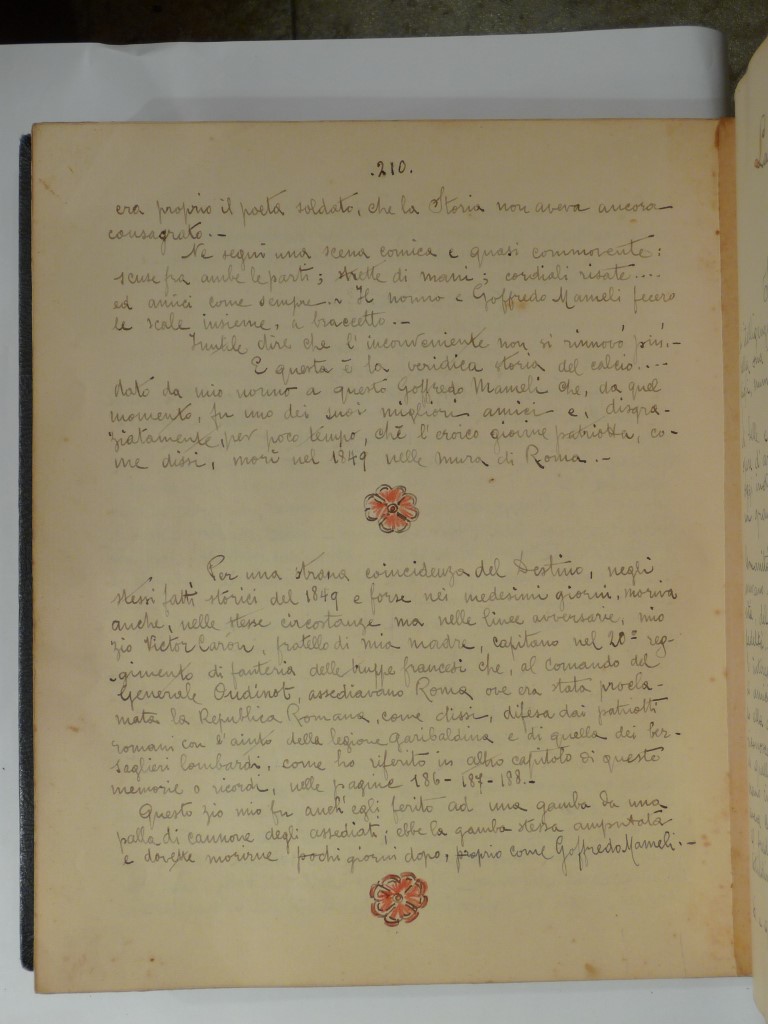 .210.
era proprio il poeta soldato, che la Storia non aveva ancora
consagrato.-
Ne seguì una scena comica e quasi commovente:
scuse fra ambe le parti; strette di mani; cordiali risate....
ed amici come sempre.. Il nonno e Goffredo Mameli fecero
le scale insieme, a braccetto.-
Inutile dire che l'inconveniente non si rinnovò più.-
E questa è la veridica storia del calcio....
dato da mio nonno a questo Goffredo Mameli che, da quel
momento, fu uno dei suoi migliori amici e, disgra-
ziatamente, per poco tempo, chè l'eroico giovine patriotta, co-
me dissi, morì nel 1849 nelle mura di Roma.-
Per una strana coincidenza del Destino, negli
stessi fatti storici del 1849 e forse nei medesimi giorni, moriva
anche, nelle stesse circostanze ma nelle linee avversarie, mio
zio Victor Caròn, fratello di mia madre, capitano nel 20º reg-
gimento di fanteria delle truppe francesi che, al comando del
Generale Oudinot, assediavano Roma ove era stata procla-
mata la Repubblica Romana, come dissi, difesa dai patriotti
romani con l'aiuto della legione Garibaldina e di quella dei ber-
saglieri lombardi, come ho riferito in altro capitolo di queste
memorie o ricordi, nelle pagine 186-187-188.-
Questo zio mio fu anch'egli ferito ad una gamba da una
palla di cannone degli assediati; ebbe la gamba stessa amputata
e dovette morirne pochi giorni dopo, proprio come Goffredo Mameli.-